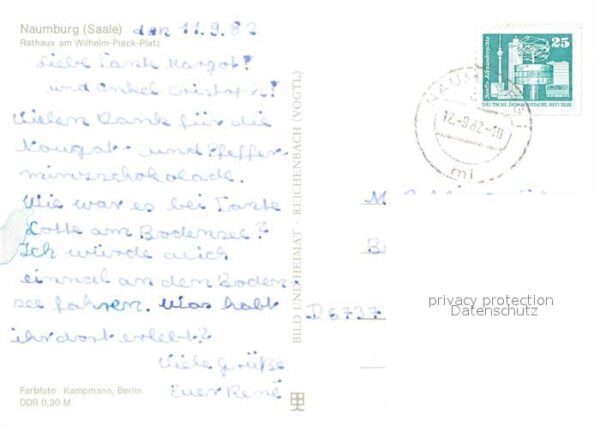 Naumburg (Saale) den 11.9.82
Rathaus am Wilhelm-Pieck-Platz
Liebe Tante Margot!
und Onkel
Vielen Dank für die
Nougat- und Pfeffer-
minzschokolade.
Wie war es bei Tante
Lotte am Bodensee?
Ich würde auch
einmal an den Boden-
see fahren. Was habt
ihr dort erlebt?
Viele Grüße
Euer René
Farbfoto: Kampmann, Berlin
DDR 0,20 M
BILD UND HEIMAT · REICHENBACH (VOGTL)
25
Berlin, Alexanderplatz
DEUTSCHE DEMOKRATISCHE REPUBLIK
12.-9.82-18
D 6737
privacy protection
Datenschutz